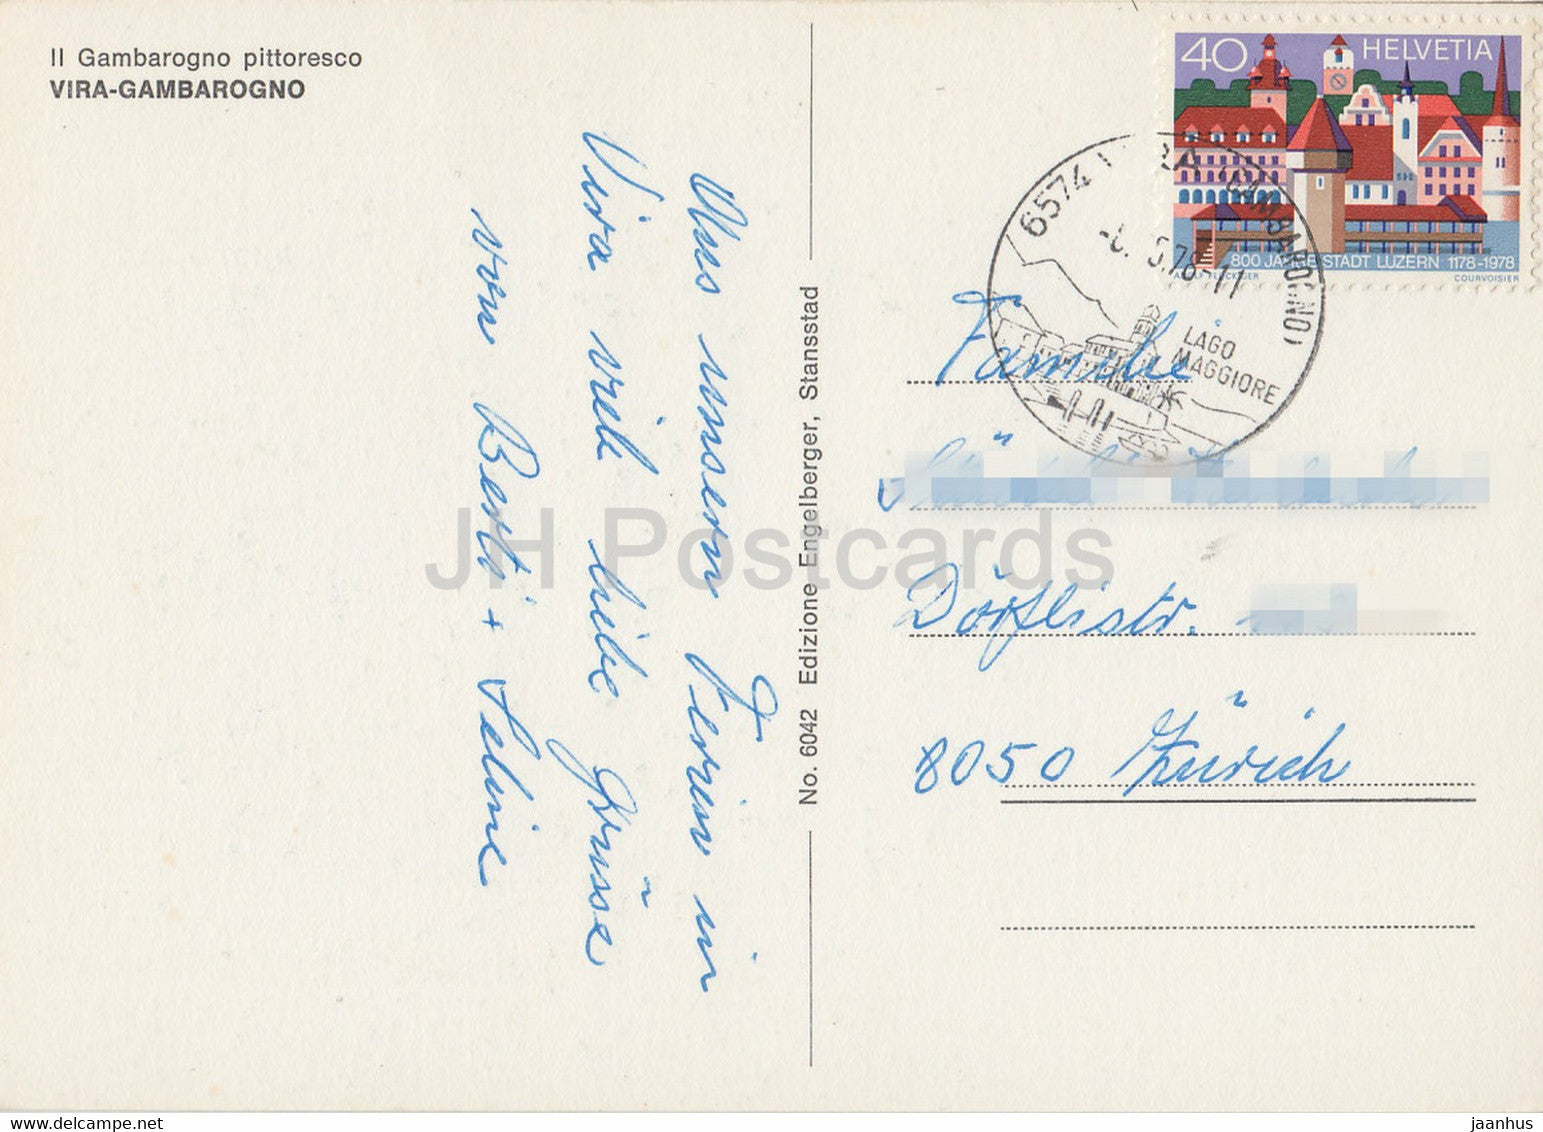 Il Gambarogno pittoresco
VIRA-GAMBAROGNO
Aus unsern Ferien in
Vira viele liebe Grüsse
von Berti + Seline
No. 6042 Edizione Engelberger, Stansstad
40 HELVETIA
800 JAHRE STADT LUZERN 1178-1978
COURVOISIER
6574 VIRA (GAMBAROGNO)
5.78-11
LAGO
MAGGIORE
Familie
Dörflistr.
8050 Zürich
JH Postcards
jaanhus